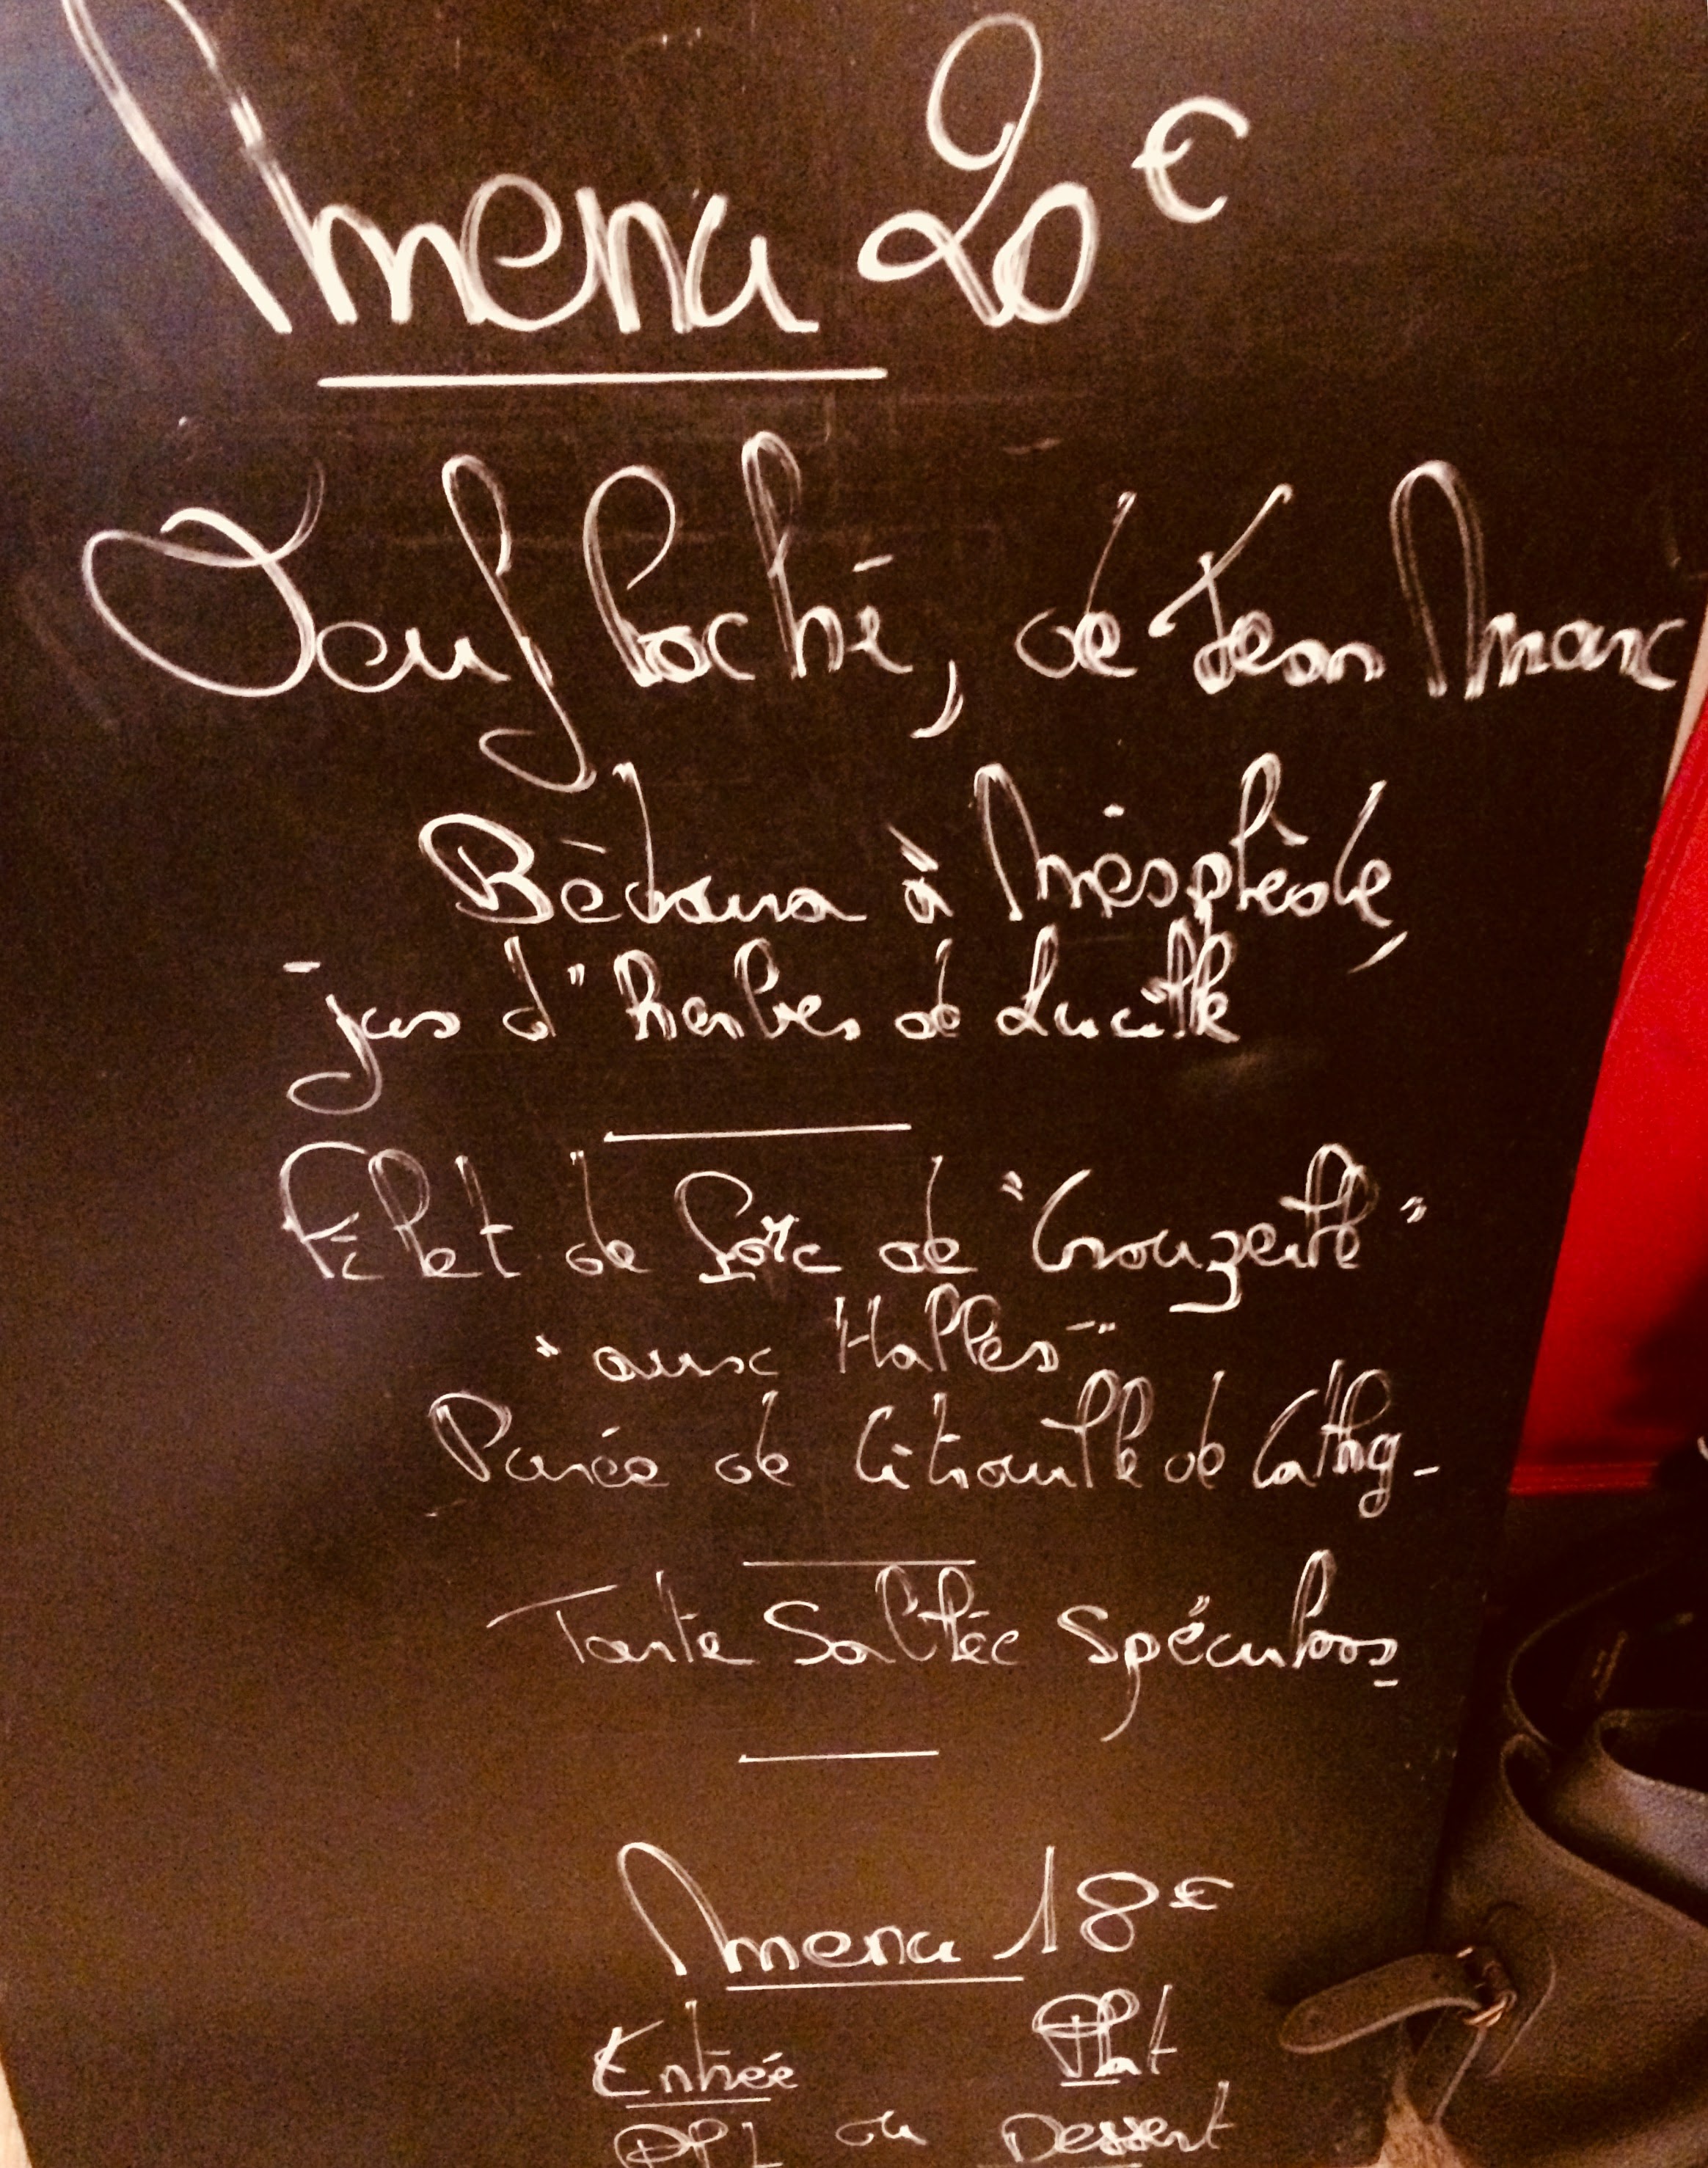 Menu 20€
Oeuf Poché, de Jean Marc
à Mesplède,
jus d'herbes de Lucille
Filet de Porc de "Crouzeille"
"aux Halles"
Purée de Citrouille de Cathy-
Tarte Sablée Spéculoos
Menu 18€
Entrée Plat
Plat ou Dessert